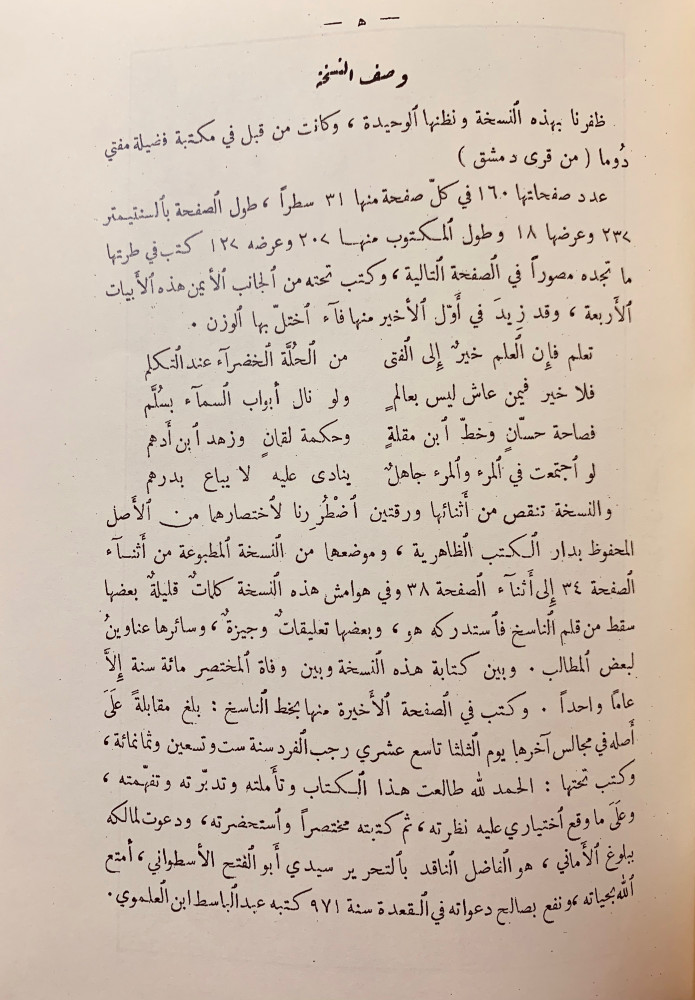 — ه —
وصف النسخة
ظفرنا بهذه النسخة ونظنها الوحيدة ، وكانت من قبل في مكتبة فضيلة مفتي
دُوما ( من قرى دمشق )
عدد صفحاتها ١٦٠ في كلّ صفحة منها ٣١ سطراً ، طول الصفحة بالسنتيمتر
٢٣٧ وعرضها ١٨ وطول المكتوب منها ٢٠٧ وعرضه ١٢٧ كتب في طرتها
ما تجده مصوراً في الصفحة التالية ، وكتب تحته من الجانب الأيمن هذه الأبيات
الأربعة ، وقد زِيدَ في أوّل الأخير منها فآء اختلّ بها الوزن .
تعلم فإن العلم خيرٌ إلى الفتى من الحُلَّة الخضرآء عند التكلم
فلا خير فيمن عاش ليس بعالمٍ ولو نال أبواب السمآء بسُلَّم
فصاحة حسّانٍ وخطّ ابن مقلةٍ وحكمة لقمانٍ وزهد ابن أدهم
لو اجتمعت في المرء والمرء جاهلٌ ينادى عليه لا يباع بدرهم
والنسخة تنقص من أثنائها ورقتين اضْطُرِرنا لاختصارهما من الأصل
المحفوظ بدار الكتب الظاهرية ، وموضعهما من النسخة المطبوعة من أثنآء
الصفحة ٣٤ إلى أثنآء الصفحة ٣٨ وفي هوامش هذه النسخة كلماتٌ قليلةٌ بعضها
سقط من قلم الناسخ فاستدركه هو ، وبعضها تعليقاتٌ وجيزةٌ ، وسائرها عناوينُ
لبعض المطالب . وبين كتابة هذه النسخة وبين وفاة المختصِر مائة سنة إلاَّ
عامًا واحداً . وكتب في الصفحة الأخيرة منها بخط الناسخ : بلغ مقابلةً علَى
أصله في مجالس آخرها يوم الثلثا تاسع عشري رجب الفرد سنة ست وتسعين وثمانمائة ،
وكتب تحتها : الحمد لله طالعت هذا الكتاب وتأملته وتدبّرته وتفهّمته ،
وعلَى ما وقع اختياري عليه نظرته ، ثم كتبته مختصراً واستحضرته ، ودعوت لمالكه
ببلوغ الأماني ، هو الفاضل الناقد بالتحرير سيدي أبو الفتح الأسطواني ، أمتع
الله بحياته ، ونفع بصالح دعواته في القعدة سنة ٩٧١ كتبه عبدالباسط ابن العلموي .